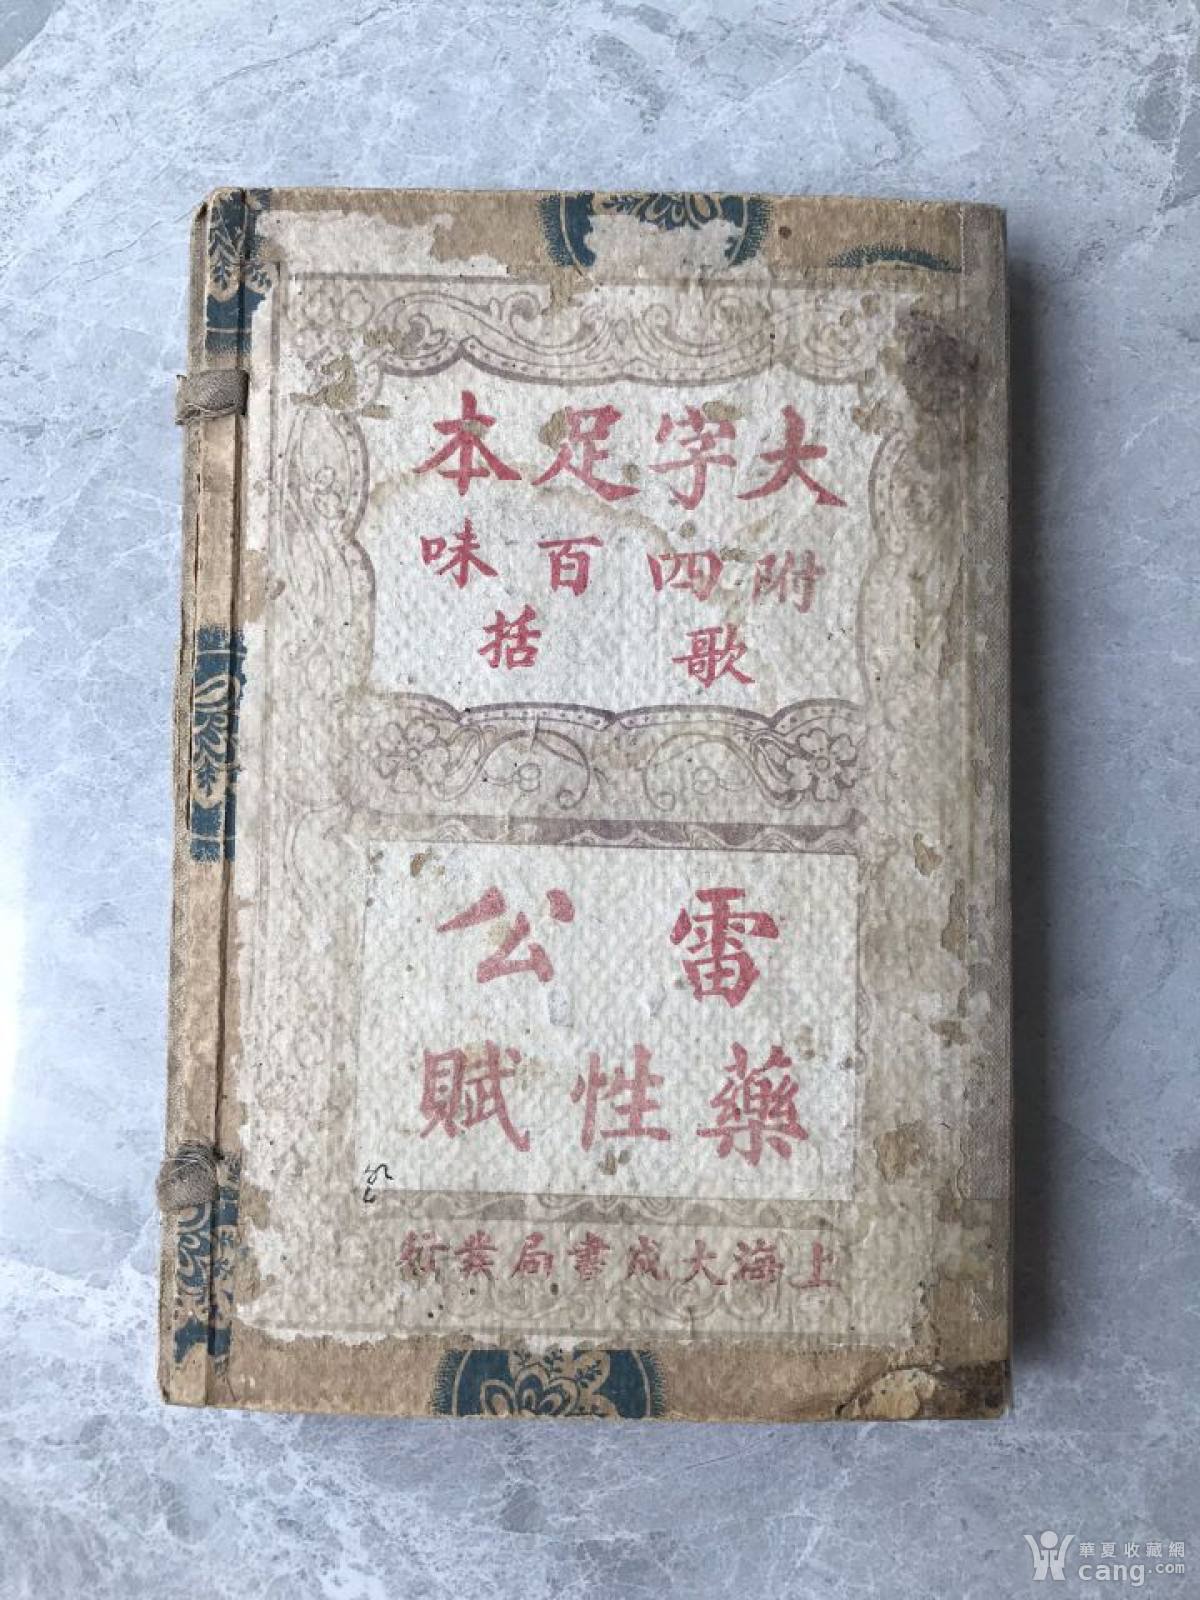 大字足本
附四百味
歌括
雷公
藥性賦
上海大成書局發行
華夏收藏網
cang.com